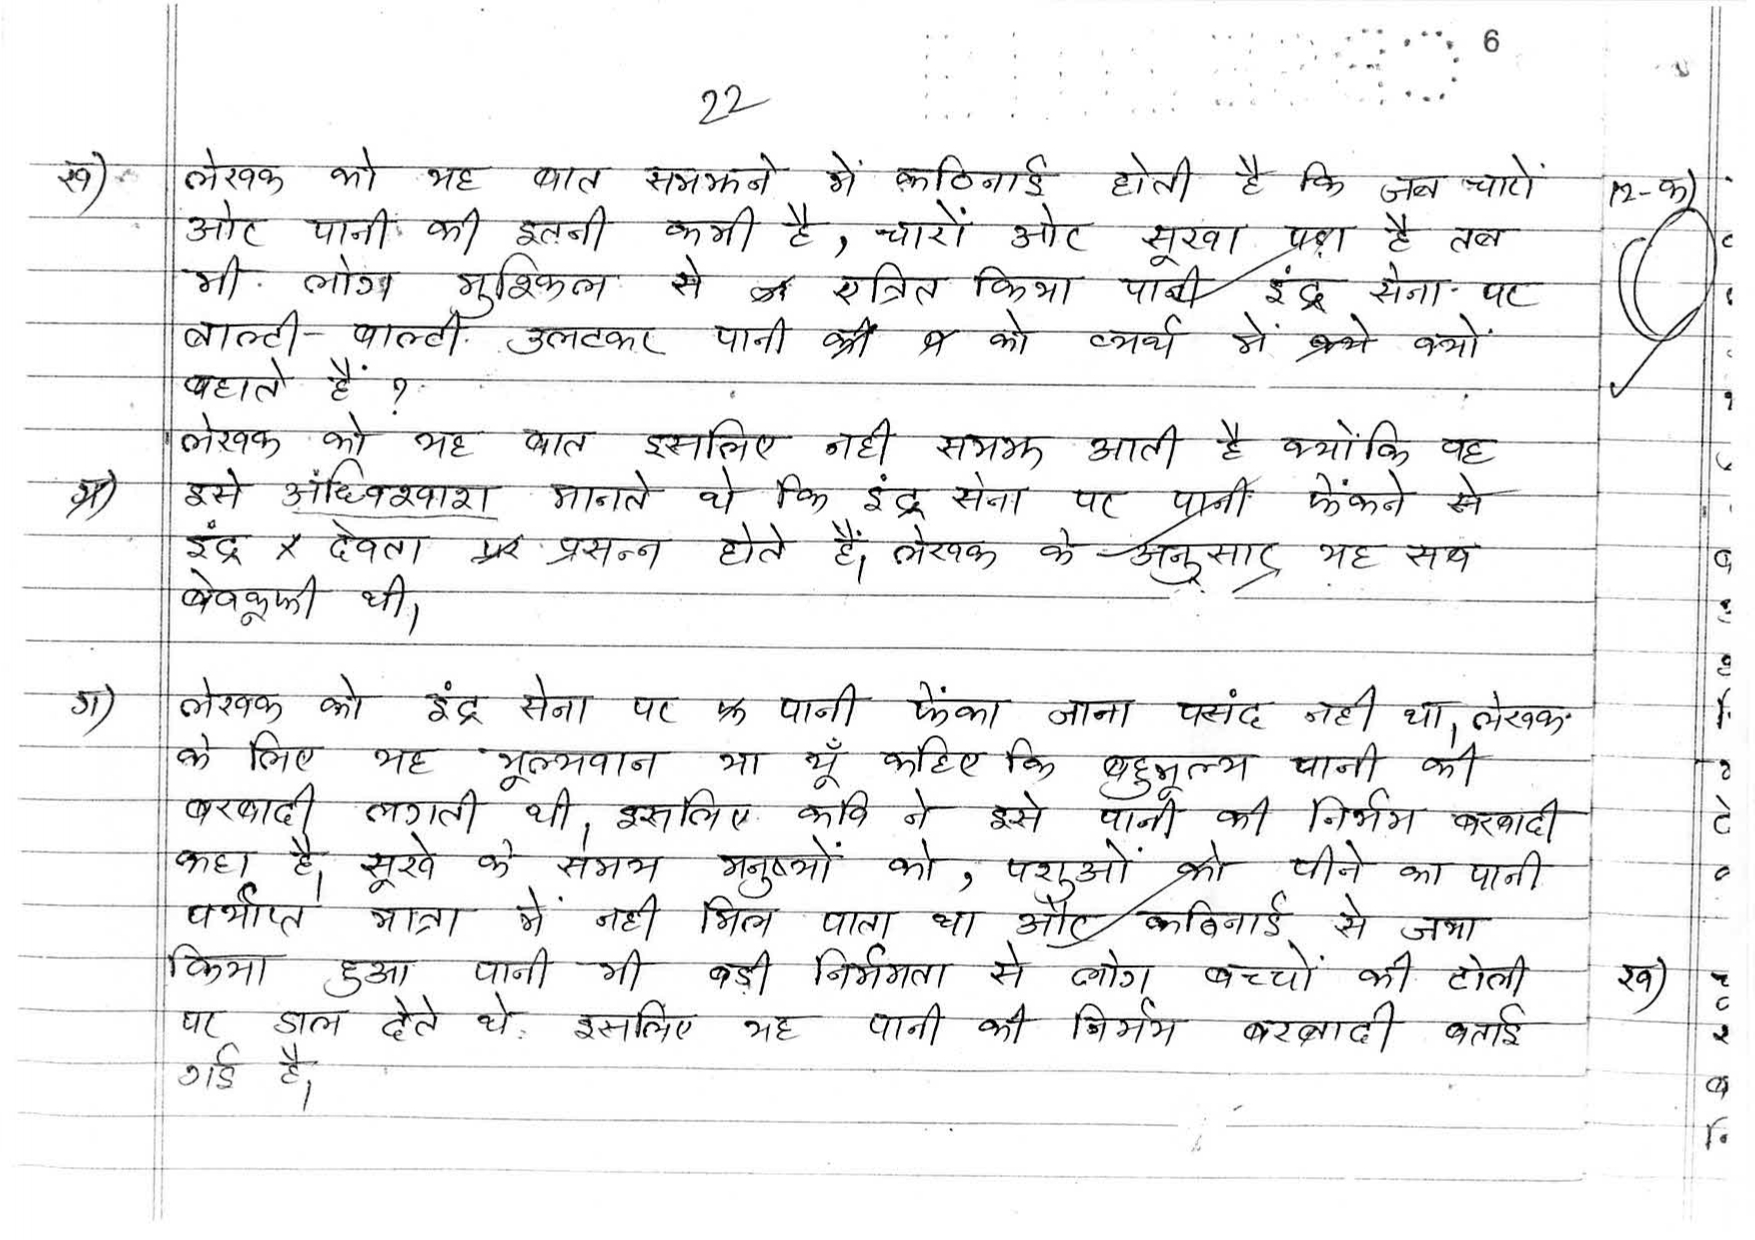 6
22
ख) लेखक को यह बात समझने में कठिनाई होती है कि जब चारों
ओर पानी की इतनी कमी है, चारों ओर सूखा पड़ा है तब
भी लोग मुश्किल से एत्रित किया पानी इंद्र सेना पर
बाल्टी-बाल्टी उलटकर पानी को व्यर्थ में क्यों
बहाते हैं ?
लेखक को यह बात इसलिए नही समझ आती है क्योंकि वह
इसे अंधिवश्वाश मानते थे कि इंद्र सेना पर पानी फेंकने से
इंद्र देवता प्रसन्न होते हैं। लेखक के अनुसार यह सब
बेवकूफी थी।
ग) लेखक को इंद्र सेना पर पानी फेंका जाना पसंद नही था। लेखक
के लिए यह मूल्यवान या यूँ कहिए कि बहुमूल्य पानी की
बरबादी लगती थी। इसलिए कवि ने इसे पानी की निर्मम बरबादी
कहा है। सूखे के समय मनुष्यों को, पशुओं को पीने का पानी
पर्याप्त मात्रा में नही मिल पाता था और कठिनाई से जमा
किया हुआ पानी भी बड़ी निर्ममता से लोग बच्चों की टोली
पर डाल देते थे. इसलिए यह पानी की निर्मम बरबादी बताई
गई है।
12-क)
ख)